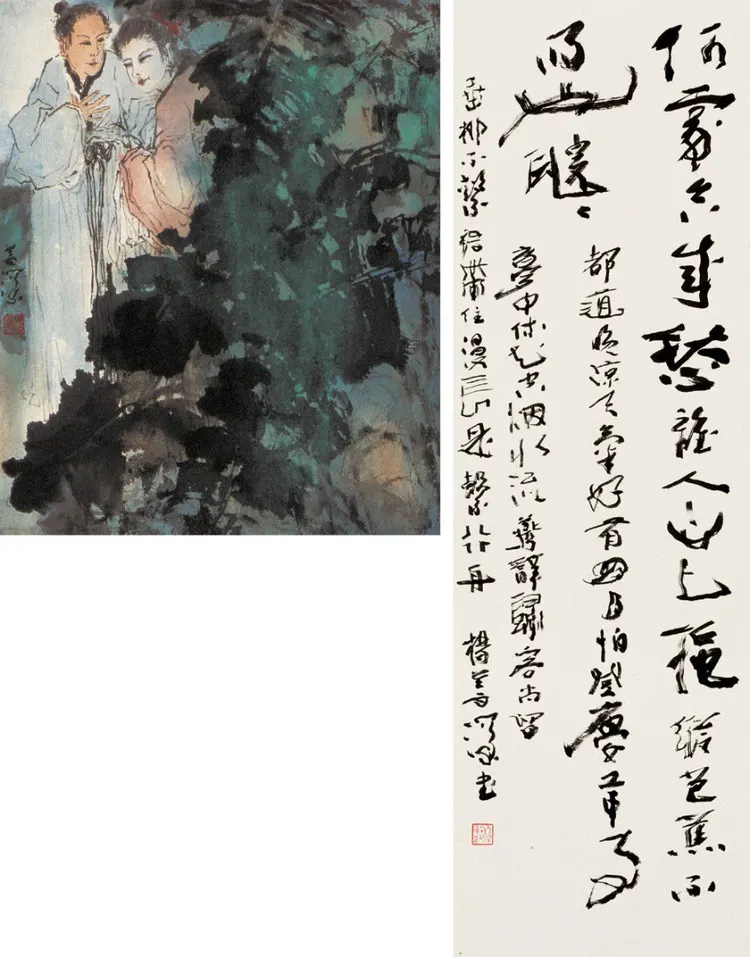 善深
何處合成愁離人心上秋縱芭蕉不
雨也颼々
都道晚涼天氣好有明月怕登樓年事
夢中休花空煙水流燕辭歸客尚留
垂柳不縈裙帶住漫長是繫行舟 楊善深書